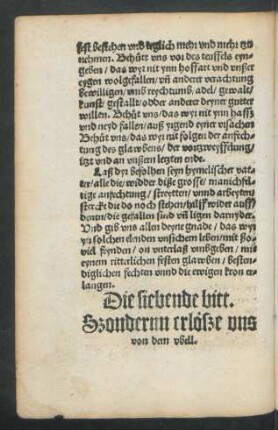 fest bestehen vnd teglich mehr vnd mehr tzu
nehmen. Behütt vns vor des teuffels eyn
geben / das wyr nit ynn hoffart vnd vnßer
eygen wolgefallen / vñ ander verachtung
bewilligen / vmb reychtumb, adel / gewalt /
kunst / gestallt / odder anderer deyner gutter
willen. Behüt vns / das wyr nit ynn hass
vnd neyd fallen / auß yrgend eyner vrsachen
Behüt vns / das wyr nit folgen der anfech-
tung des glawbens / der vortzweyfflung /
itzt vnd an vnßerm letzten ende.
Laß dyr befolhen seyn hymelischer vat
ter / alle die / widder diße grosse / manichfel-
tige anfechtung / streytten / vnnd arbeyten
stercke die do noch stehen / hilff widder auff
denen / die gefallen sind vñ ligen darnyder.
Vnd gib vns allen deyne gnade / das wyr
yn solchen elenden vnsichern leben / mit ßo
viel feynden / on vnterlaß vmbgeben / mit
eynem ritterlichen festen glawben / besten-
diglichen fechten vnnd die ewigen kron er-
langen.
Die siebende bitt.
Szondernn erlösze vns
von dem vbell.